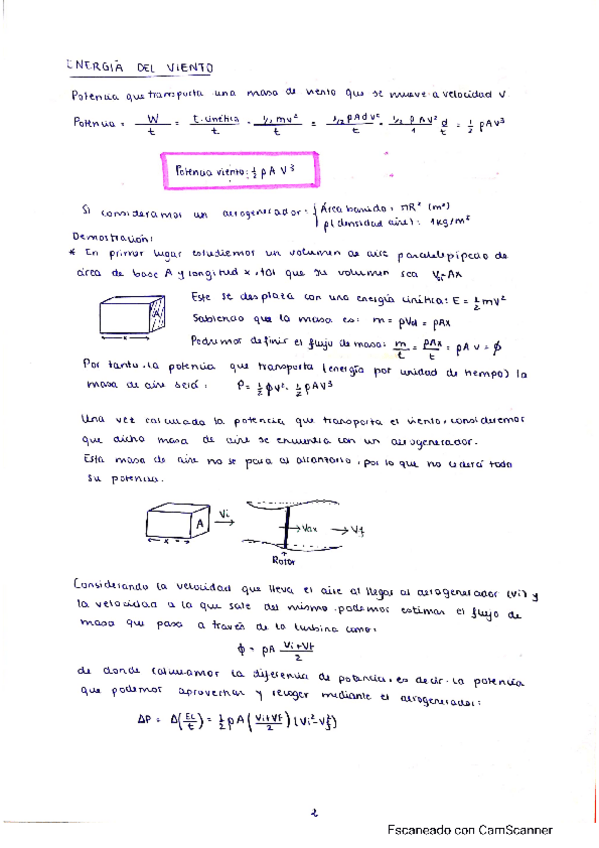 ENERGIA DEL VIENTO
Potencia que transporta una masa de viento que se mueve a velocidad v
Potencia = W/t = E. cinética/t = 1/2 mv²/t = 1/2 ρAdv²/t = 1/2 ρAv²/1 d/t = 1/2 ρAv³
Potencia viento: 1/2 ρ A V³
Si consideramos un aerogenerador: { Área barrido: πR² (m²)
ρ (densidad aire): 1kg/m³
Demostración:
* En primer lugar estudiemos un volumen de aire paralelepípedo de
área de base A y longitud x, tal que su volumen sea V=Ax
Este se desplaza con una energía cinética: E = 1/2 mv²
Sabiendo que la masa es: m = ρVd = ρAx
Podemos definir el flujo de masa: m/t = ρAx/t = ρAv = φ
A
x
Por tanto, la potencia que transporta (energía por unidad de tiempo) la
masa de aire será: P= 1/2 φv² = 1/2 ρAV³
Una vez calculada la potencia que transporta el viento, consideremos
que dicha masa de aire se encuentra con un aerogenerador.
Esta masa de aire no se para al alcanzarlo, por lo que no cederá toda
su potencia.
A
x
Vi
Vax
Vf
Rotor
Considerando la velocidad que lleva el aire al llegar al aerogenerador (Vi) y
la velocidad a la que sale del mismo podemos estimar el flujo de
masa que pasa a través de la turbina como:
φ = ρA Vi+Vf/2
de donde calculamos la diferencia de potencia, es decir, la potencia
que podemos aprovechar y recoger mediante el aerogenerador:
ΔP = Δ(Ec/t) = 1/2 ρA (Vi+Vf/2) (Vi²-Vf²)
2
Escaneado con CamScanner